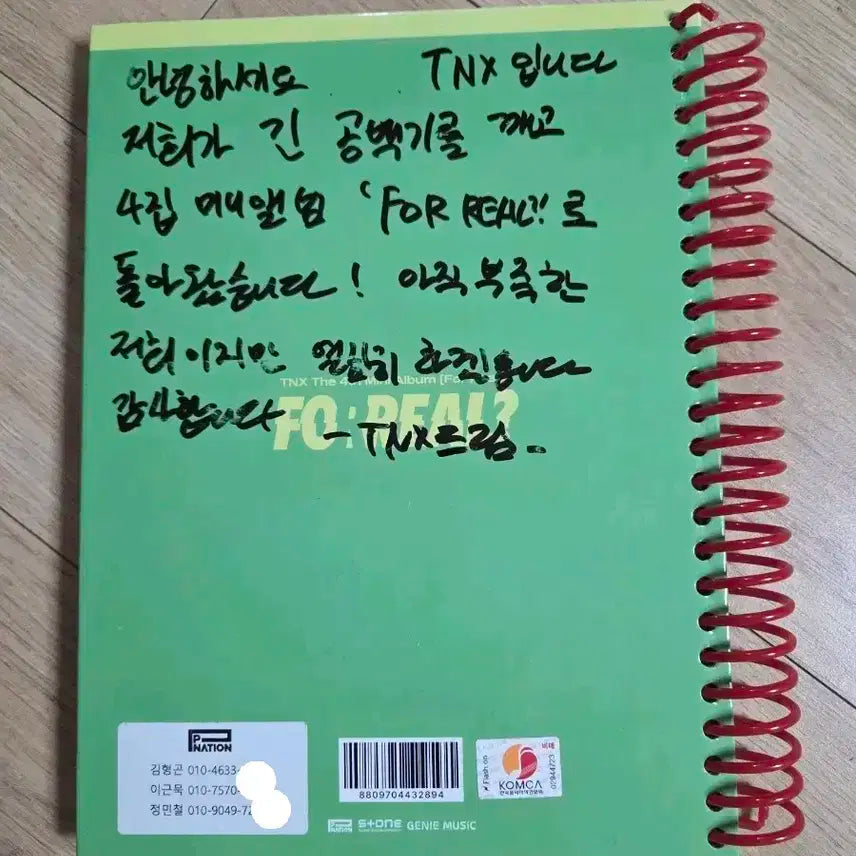 안녕하세요 TNX 입니다
저희가 긴 공백기를 깨고
4집 미니앨범 'FOR REAL?'로
돌아왔습니다! 아직 부족한
저희이지만 열심히 하겠습니다
감사합니다
- TNX드림.
TNX The 4th Mini Album [For
FO REAL?
P NATION
김형곤 010-4633-
이근욱 010-7570-
정민철 010-9049-72
8809704432894
Flash.on
KOMCA
비매
02944723
P NATION S+ONE GENIE MUSIC